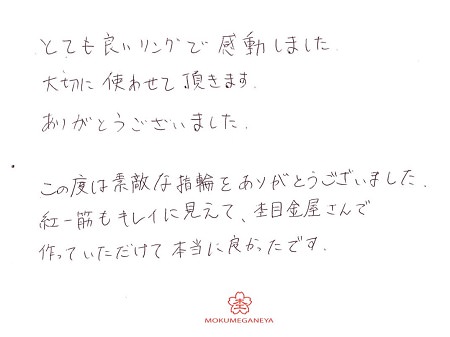 とても良いリングで感動しました.
大切に使わせて頂きます.
ありがとうございました.
この度は素敵な指輪をありがとうございました.
紅一筋もキレイに見えて、杢目金屋さんで
作っていただけて本当に良かったです.
杢
MOKUMEGANEYA